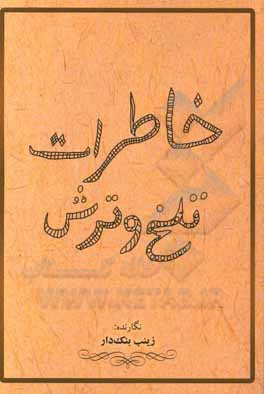 خاطرات
تلخ و ترش
نگارنده:
زینب بنک‌دار
WWW.KETAB.IR